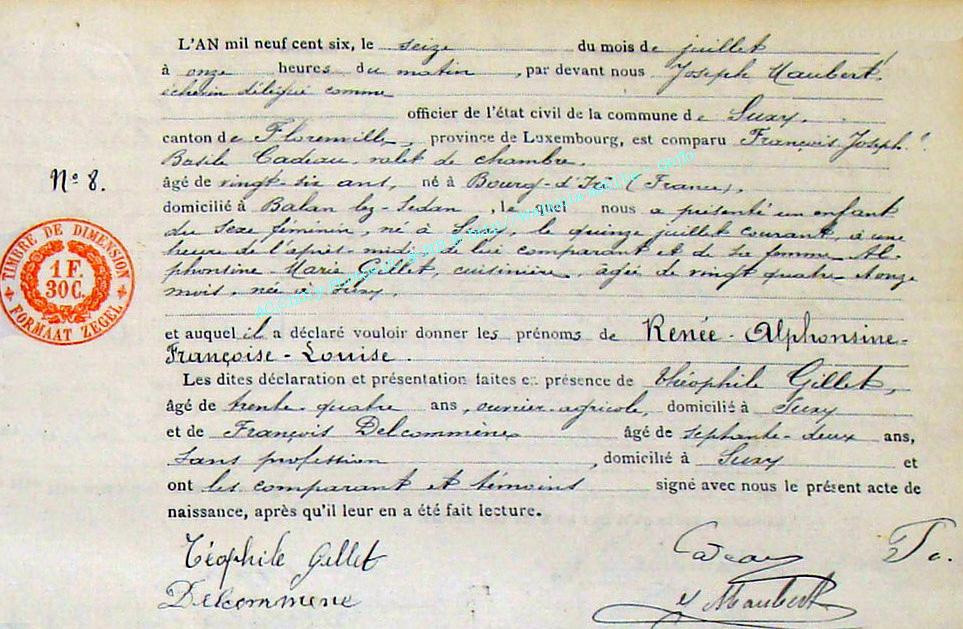 L'AN mil neuf cent six, le seize du mois de juillet
à onze heures du matin, par devant nous Joseph Maubert,
échevin délégué comme
officier de l'état civil de la commune de Suxy,
canton de Florenville, province de Luxembourg, est comparu François Joseph
Basile Cadeau, valet de chambre,
Nº 8.
âgé de vingt-six ans, né à Bourg-d'Iré (France),
domicilié à Balan lez-Sedan, lequel nous a présenté un enfant
du sexe féminin, né à Suxy, le quinze juillet courant, à une
heure de l'après-midi, de lui comparant et de sa femme Al-
phonsine Marie Gillet, cuisinière, âgée de vingt quatre ans onze
mois, née à Suxy,
TIMBRE DE DIMENSION
1 F.
30 C.
FORMAAT ZEGEL
et auquel il a déclaré vouloir donner les prénoms de Renée-Alphonsine-
Françoise-Louise.
Les dites déclaration et présentation faites en présence de Théophile Gillet,
âgé de trente-quatre ans, ouvrier agricole, domicilié à Suxy
et de François Delcommène âgé de septante-deux ans,
sans profession, domicilié à Suxy et
ont les comparant et témoins signé avec nous le présent acte de
naissance, après qu'il leur en a été fait lecture.
Téophile Gillet Cadeau
Delcommene J Maubert